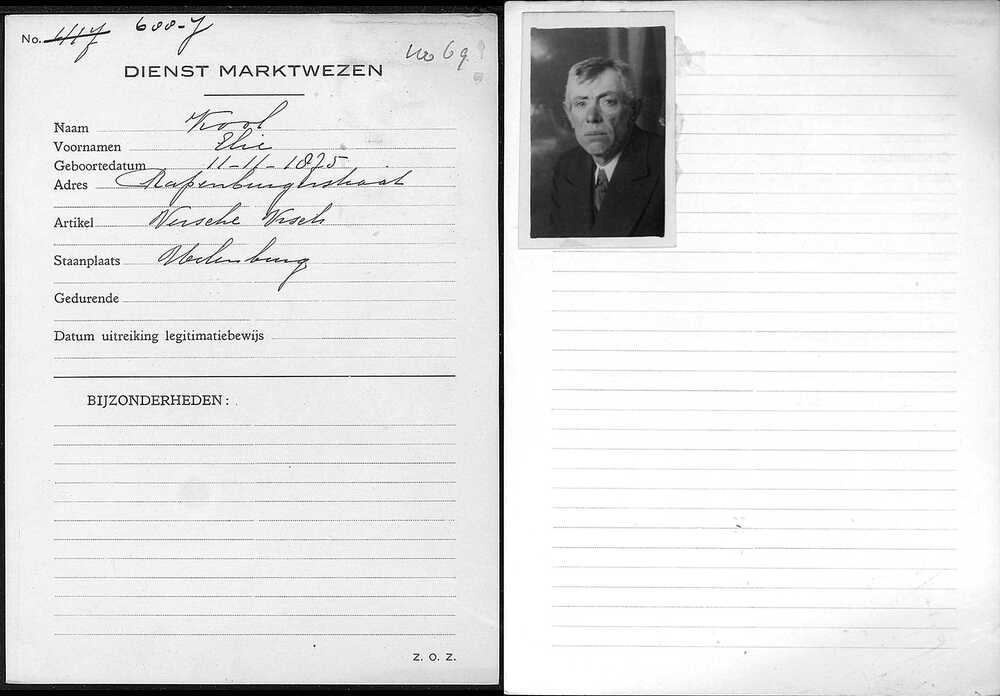 No. 417 600-J
no 69
DIENST MARKTWEZEN
Naam Kool
Voornamen Elie
Geboortedatum 11-11-1875
Adres Rapenburgerstraat
Artikel Versche Visch
Staanplaats Uilenburg
Gedurende
Datum uitreiking legitimatiebewijs
BIJZONDERHEDEN:
Z. O. Z.